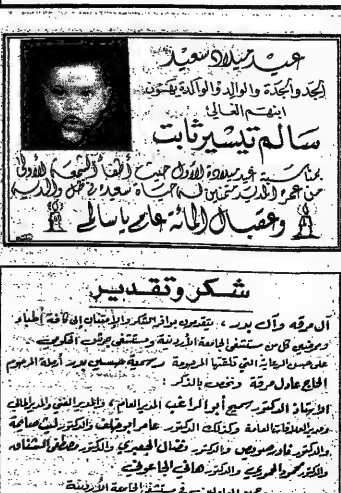 عيد ميلاد سعيد
الجد والجدة والوالد والوالدة يهنئون
ابنهم الغالي
سالم تيسير ثابت
بمناسبة عيد ميلاده الأول حيث أطفأ الشمعة الأولى
من عمره المديد متمنين له حياة سعيدة في ظل والديه
وعقبال المائة عام يا سالم
شكر وتقدير
آل مرقه وآل بدر، يتقدمون بوافر الشكر والامتنان إلى كافة أطباء
وموظفي كل من مستشفى الجامعة الأردنية ومستشفى جرش الحكومي
على حسن الرعاية التي تلقتها المرحومة رسمية حسين بدر أرملة المرحوم
الحاج عادل مرقة ونخص بالذكر:
الأستاذ الدكتور سميح أبو الراغب المدير العام، والمدير الفني والمدير المالي
ومدير العلاقات العامة وكذلك الدكتور عامر والدكتور
والدكتور والدكتور نضال والدكتور مصطفى
والدكتور محمود والدكتور
في مستشفى الجامعة الأردنية